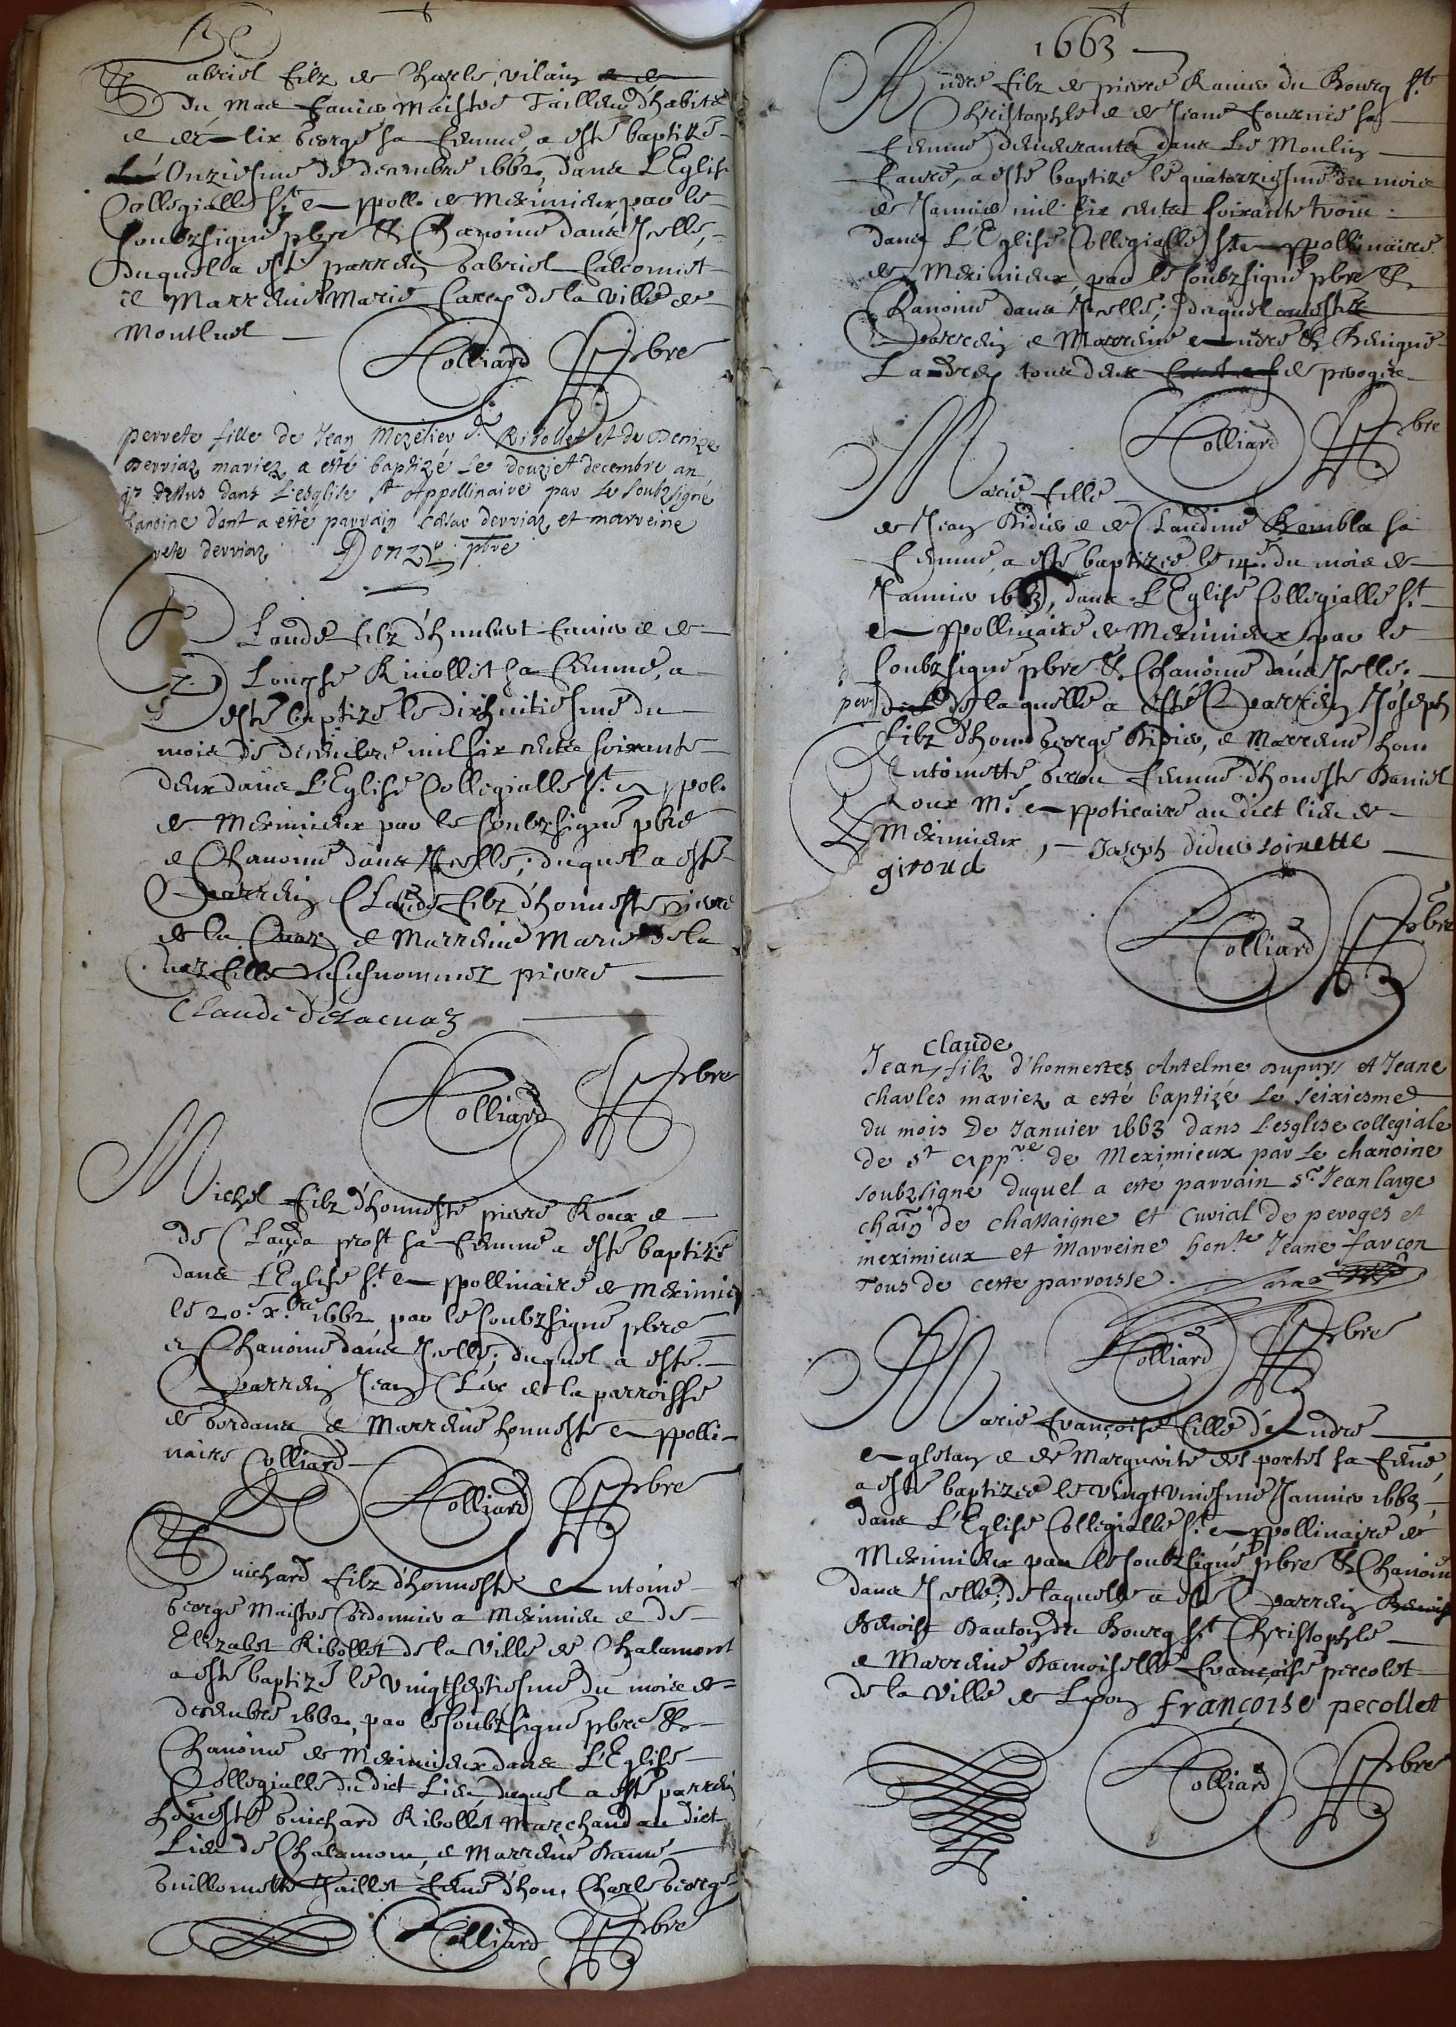 Gabriel filz de Charle vilain
du Mas fauier Maistre Tailleur d'habits
George sa femme, a esté baptizé
L'Onziesme de decembre 1662, dans L'Eglise
Collegialle St Appoll. de Meximieux par le
soubzsigné pbre & Chanoine dans Icelle,
duquel a esté parrein Gabriel
et Marreine Marie de la Ville de
Montluel
Colliard pbre
pervete fille de Jean Mezelier Sr Ribollet et de Denize
Derviaz mariez a esté baptizé Le douzie decembre an
dessus dans L'esglise St Appollinaire par Le soubsigné
chanoine dont a esté parrain Cesar derviaz et marreine
derviaz Donzy pbre
Claude filz d'humbert fauier et de
Louyse Ribollet sa femme, a
esté baptizé le dixhuitiesme du
mois de decembre mil six cents soixante
deux dans L'Eglise Collegialle St Appol.
de Meximieux par le soubzsigné pbre
& Chanoine dans Icelle; duquel a esté
Parrein Claude filz d'honneste pierre
de la Cuaz et Marreine Marie de la
Cuaz fille susnommez pierre
Claude delacuaz
Colliard pbre
Michel filz d'honneste pierre Roux et
de Clauda prost sa femme a esté baptizé
dans L'Eglise St Appollinaire de Meximieux
le 20e Xbre 1662 par le soubzsigné pbre
& Chanoine dans Icelle; duquel a esté
Parrein Jean Clex de la parroisse
de bordans et Marreine honneste Appolli-
naire Colliard
Colliard pbre
Guichard filz d'honneste Antoine
George Maistre Cordonnier a Meximieu et de
Elizabet Ribollet de la Ville de Chalamont
a esté baptizé le vingtseptiesme du mois de
decembre 1662, par le soubzsigné pbre &
Chanoine de Meximieux dans L'Eglise
Collegialle du dict Lieu, duquel a esté parrein
honeste Guichard Ribollet Marchand au dict
Lieu de Chalamont, et Marreine Dame
Guillomette Jaillet feme d'hon. Charle George
Colliard pbre
1663
Andre filz de pierre Ranier du Bourg St
Christophle et de Jeane fournier sa
femme demeurants dans Les Moulin
faure, a esté baptizé le quatorziesme du mois
de Janvier mil six cents soixante trois
dans L'Eglise Collegialle St Appollinaire
de Meximieux, par le soubzsigné pbre &
Chanoine dans Icelle; duquel a esté
Parrein et Marreine Andre & Benigne
Landrey tous deux de peroges
Colliard pbre
Marie fille
de Jean Didier et de Claudine Rembla sa
femme, a esté baptizée le 14e du mois de
Janvier 1663, dans L'Eglise Collegialle St
Appollinaire de Meximieux, par le
soubzsigné pbre & Chanoine dans Icelle;
de laquelle a esté Parrein Joseph
filz d'hon. George Didier, et Marreine hon.
Antoinette Girou femme d'honeste Daniel
Roux Me Appoticaire au dict lieu de
Meximieux, Joseph didier toinette
giroud
Colliard pbre
claude
Jean, filz d'honnestes Antelme dupuys et Jeane
charles mariez a esté baptizé Le seixiesme
du mois De Janvier 1663 dans L'esglise collegiale
de St Appre de Meximieux par Le chanoine
soubzsigné duquel a esté parrain Sr Jean large
chãn de chassaigne et Curial de peroges et
meximieux et Marreine honte Jeane farcon
Tous de ceste parroisse.
Colliard pbre
Marie françoise fille d'Andre
Angletan et de Marguerite des portes sa feme,
a esté baptizée le vingtuniesme Janvier 1663,
dans L'Eglise Collegialle St Appollinaire de
Meximieux par le soubzsigné pbre & Chanoine
dans Icelle; de laquelle a esté Parrein
Benoist Dantoy du Bourg St Christophle
et Marreine Damoiselle françoise peccolet
de la Ville de Lyon françoise pecollet
Colliard pbre